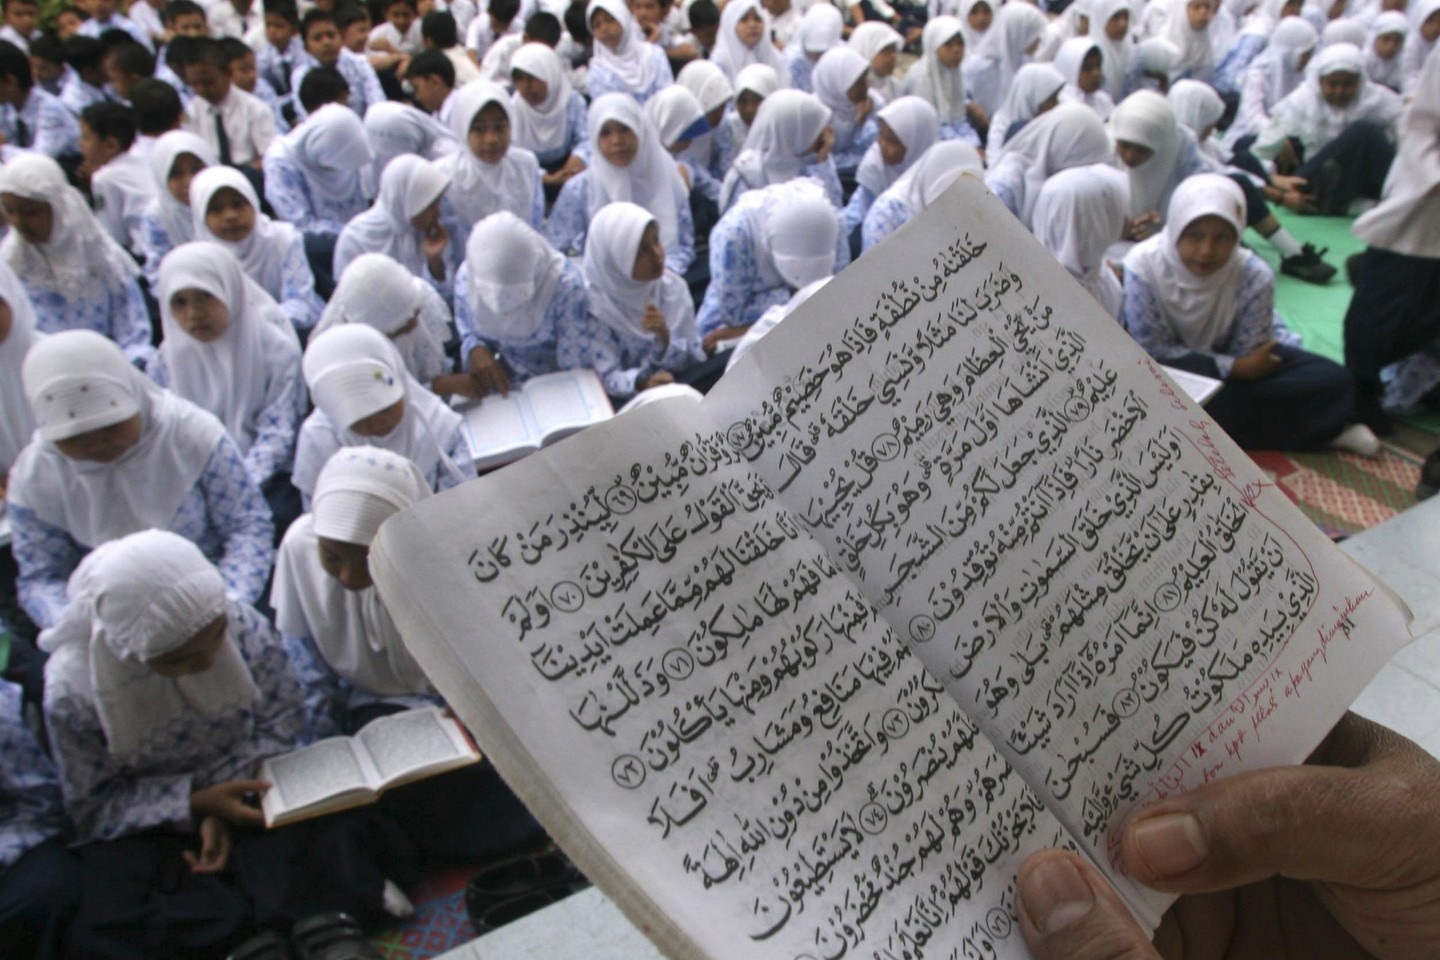 وَّقُرْاٰنٌ مُّبِيْنٌ ٦٩ لِّيُنْذِرَ مَنْ كَانَ
يَحِقَّ الْقَوْلُ عَلَى الْكٰفِرِيْنَ ٧٠ اَوَلَمْ
اَنَّا خَلَقْنَا لَهُمْ مِّمَّا عَمِلَتْ اَيْدِيْنَا
فَهُمْ لَهَا مٰلِكُوْنَ ٧١ وَذَلَّلْنٰهَا
فَمِنْهَا رَكُوْبُهُمْ وَمِنْهَا يَأْكُلُوْنَ ٧٢
فِيْهَا مَنَافِعُ وَمَشَارِبُ اَفَلَا
٧٣ وَاتَّخَذُوْا مِنْ دُوْنِ اللّٰهِ اٰلِهَةً
يُنْصَرُوْنَ ٧٤ لَا يَسْتَطِيْعُوْنَ
وَهُمْ لَهُمْ جُنْدٌ مُّحْضَرُوْنَ
يَحْزُنْكَ قَوْلُهُمْ اِنَّا نَعْلَمُ
٧٦
خَلَقْنٰهُ مِنْ نُّطْفَةٍ فَاِذَا هُوَ خَصِيْمٌ مُّبِيْنٌ ٧٧
وَضَرَبَ لَنَا مَثَلًا وَّنَسِيَ خَلْقَهٗ قَالَ
مَنْ يُّحْيِ الْعِظَامَ وَهِيَ رَمِيْمٌ ٧٨ قُلْ يُحْيِيْهَا
الَّذِيْ اَنْشَاَهَا اَوَّلَ مَرَّةٍ وَهُوَ بِكُلِّ خَلْقٍ
عَلِيْمٌ ٧٩ الَّذِيْ جَعَلَ لَكُمْ مِّنَ الشَّجَرِ
الْاَخْضَرِ نَارًا فَاِذَا اَنْتُمْ مِّنْهُ تُوْقِدُوْنَ ٨٠
اَوَلَيْسَ الَّذِيْ خَلَقَ السَّمٰوٰتِ وَالْاَرْضَ
بِقٰدِرٍ عَلٰى اَنْ يَّخْلُقَ مِثْلَهُمْ بَلٰى وَهُوَ
الْخَلّٰقُ الْعَلِيْمُ ٨١ اِنَّمَا اَمْرُهٗ اِذَا اَرَادَ شَيْـًٔا
اَنْ يَّقُوْلَ لَهٗ كُنْ فَيَكُوْنُ ٨٢ فَسُبْحٰنَ
الَّذِيْ بِيَدِهٖ مَلَكُوْتُ كُلِّ شَيْءٍ وَّاِلَيْهِ